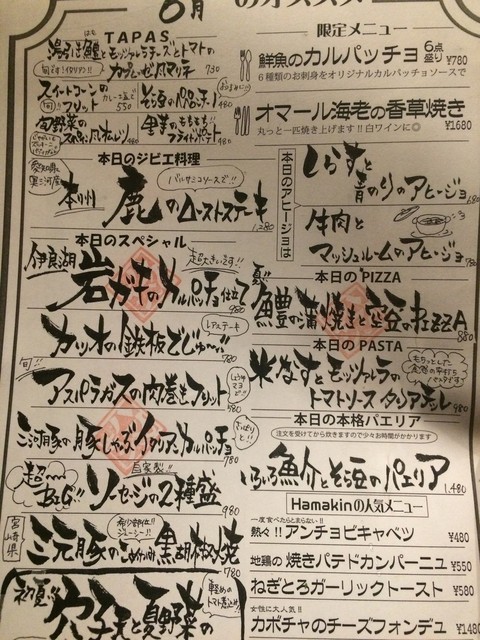 6月 のオススメ
TAPAS
湯引き鱧とモッツァレラチーズとトマトの
カプレーゼ風マリネ 730
旬です!イタリアン!!
スイートコーンの
フリット
カレー塩で 550
旬!!
そら豆のペペロンチーノ 480
旬野菜の
スペイン風オムレツ 480
里芋のもちもち!!
フライドポテト 480
本日のジビエ料理
本州 鹿のローストステーキ 1,280
バルサミコソースで!!
本日のスペシャル
伊良湖 岩ガキのカルパッチョ仕立て 980
超大きいです!!
カツオの鉄板どじゅ〜 780
レアステーキ
旬!! アスパラガスの肉巻きフリット 580
三河豚の豚しゃぶイタリアンカルパッチョ 780
さっぱりと!!
超〜BiG!! ソーセージの2種盛 980
自家製!!
宮崎県 三元豚の 黒胡椒焼 780
希少部位!!
ジューシー!!
初夏!! 穴子天と夏野菜の
軽めの
トマト煮込み!!
限定メニュー
鮮魚のカルパッチョ 6点盛り ¥780
6種類のお刺身をオリジナルカルパッチョソースで
オマール海老の香草焼き ¥1680
丸っと一匹焼き上げます!!白ワインに◎
本日のアヒージョは
しらすと
青のりのアヒージョ 680
牛肉と
マッシュルームのアヒージョ
本日の PIZZA
夏!! 鱧の蒲焼きと空谷のPIZZA 880
本日の PASTA
米なすとモッツァレラの
トマトソース タリアテッレ 980
もちっとした
食感の平打ち
パスタです
本日の本格パエリア
注文を受けてから炊きますので少々お時間がかかります
いろいろ魚介とそら豆のパエリア 1,480
Hamakinの人気メニュー
一度食べたらとまらない!!
熱々!!アンチョビキャベツ ¥480
地鶏の焼きパテドカンパーニュ ¥550
ねぎとろガーリックトースト ¥580
女性に大人気!!
カボチャのチーズフォンデュ ¥1480